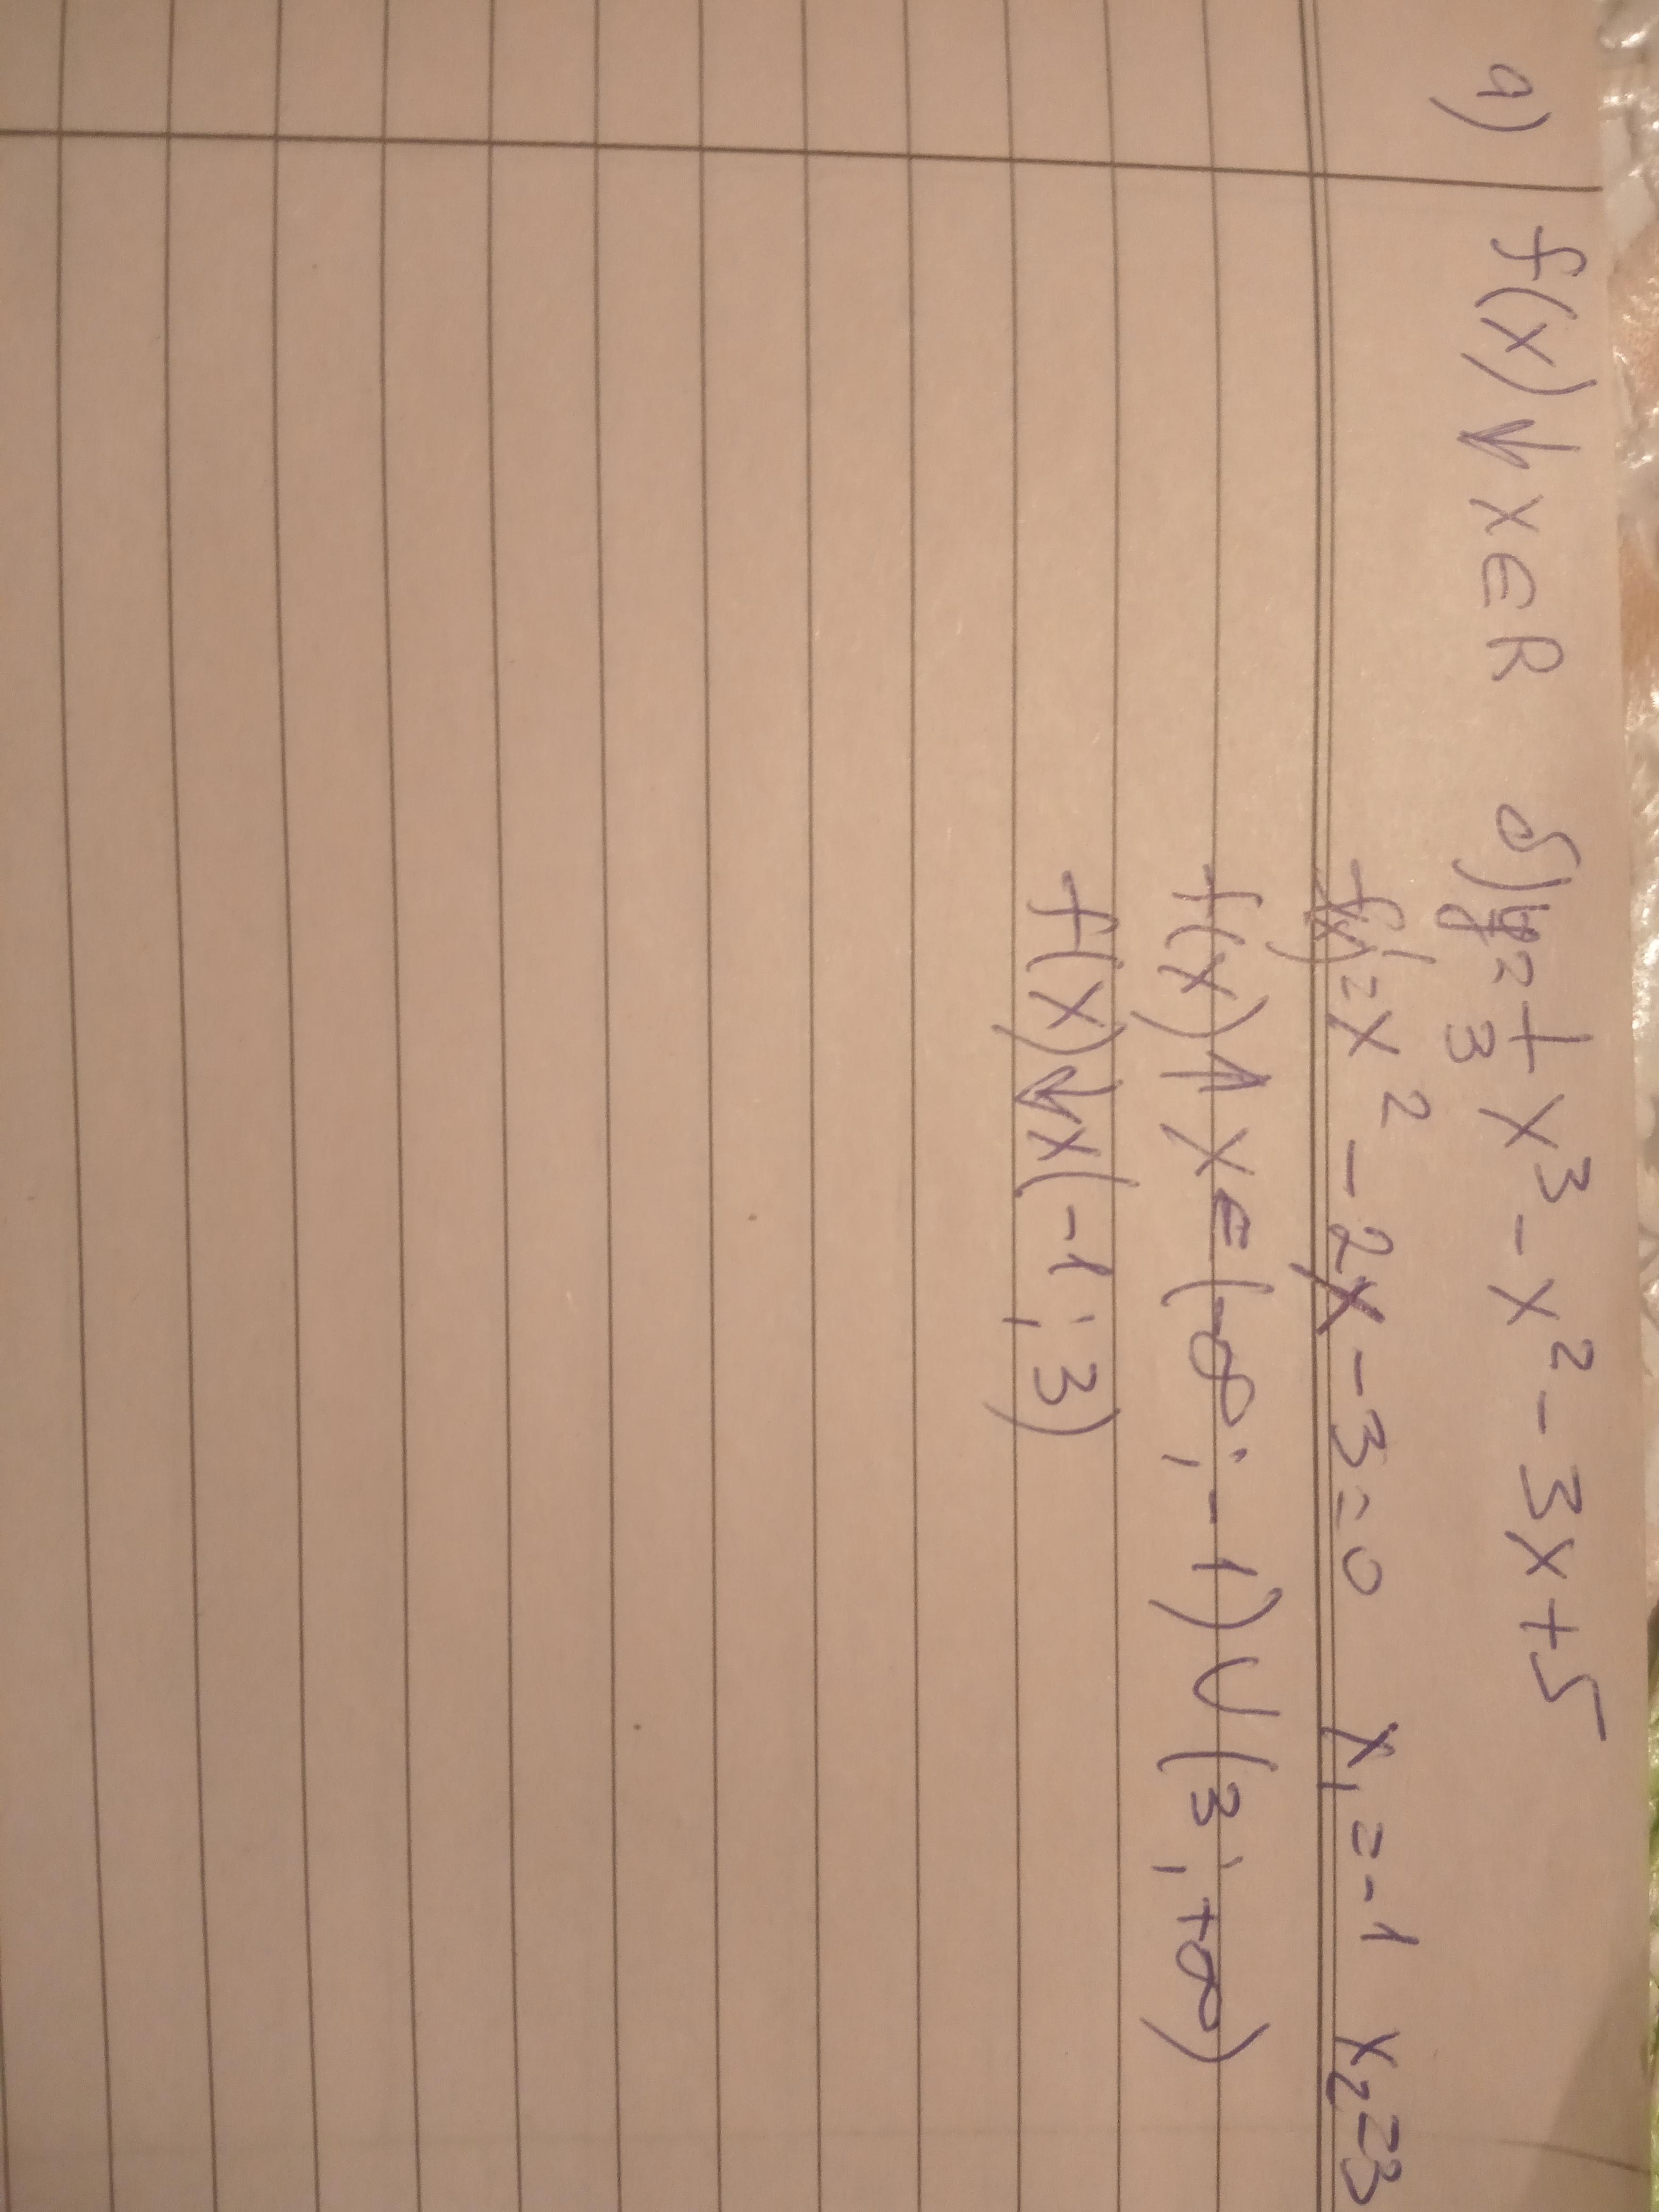 а) f(x)↓ x∈R б) y=1/3 x³-x²-3x+5
f'(x)=x²-2x-3=0 x₁=-1 x₂=3
f(x)↑ x∈(-∞;-1)∪(3;+∞)
f(x)↓x(-1;3)